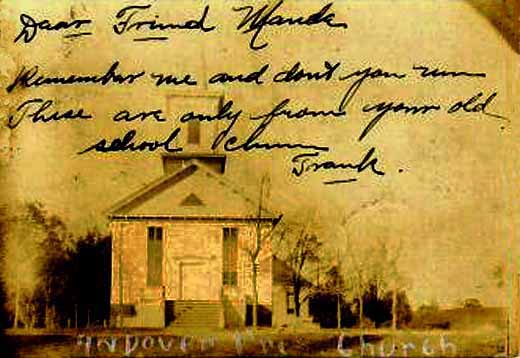 Dear Friend Maude
Remember me and don't you run
These are only from your old
school chum
Frank.
Andover Pre Church